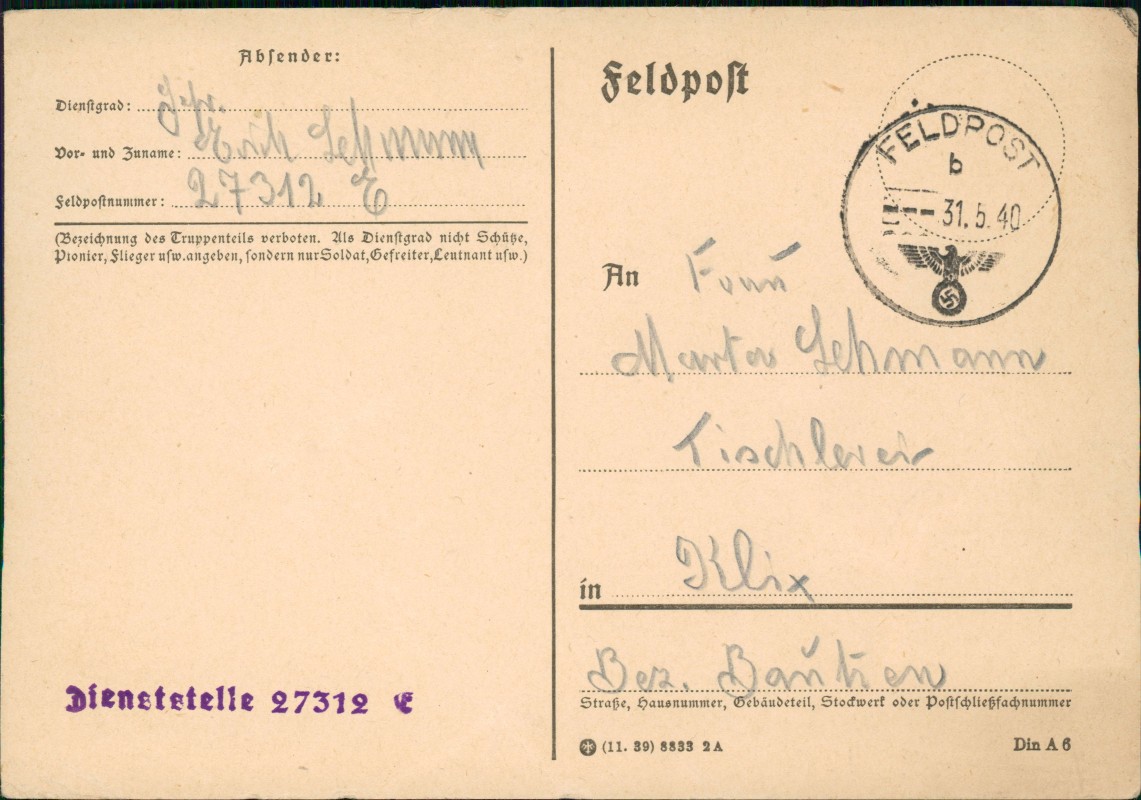 Absender:
Dienstgrad: Gefr.
Vor- und Zuname: Erich Lehmann
Feldpostnummer: 27312 E
(Bezeichnung des Truppenteils verboten. Als Dienstgrad nicht Schütze,
Pionier, Flieger usw. angeben, sondern nur Soldat, Gefreiter, Leutnant usw.)
Dienststelle 27312 E
Feldpost
FELDPOST
b
31.5.40
An Frau
Marta Lehmann
Tischlerei
in Klix
Bez. Bautzen
Straße, Hausnummer, Gebäudeteil, Stockwerk oder Postschließfachnummer
(11. 39) 8833 2A
Din A 6